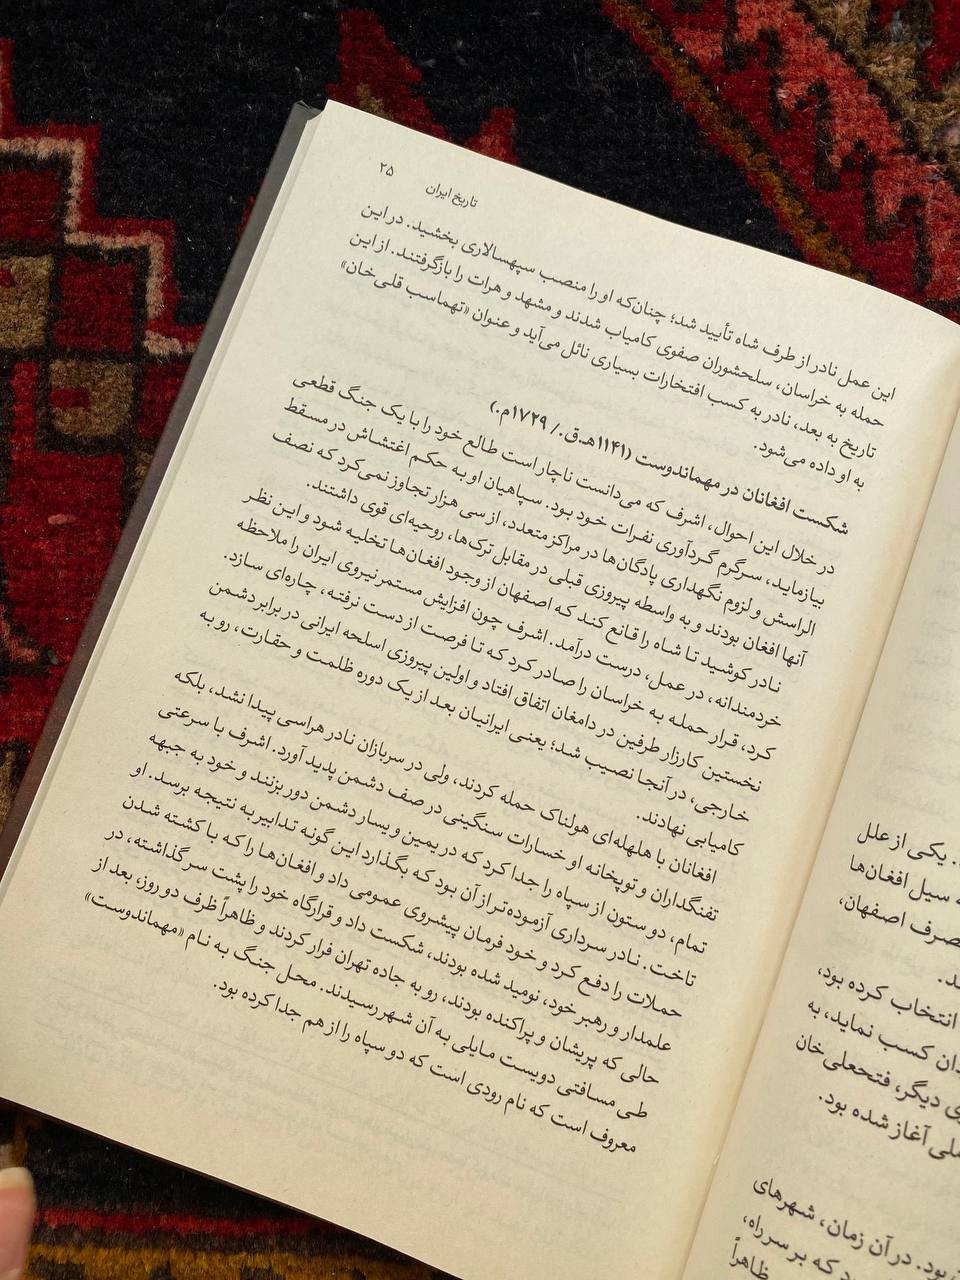 تاریخ ایران ۲۵
این عمل نادر از طرف شاه تأیید شد؛ چنان‌که او را منصب سپهسالاری بخشید. در این
حمله به خراسان، سلحشوران صفوی کامیاب شدند و مشهد و هرات را بازگرفتند. از این
تاریخ به بعد، نادر به کسب افتخارات بسیاری نائل می‌آید و عنوان «تهماسب قلی‌خان»
به او داده می‌شود.
شکست افغانان در مهماندوست (۱۱۴۱هـ.ق./ ۱۷۲۹م.)
در خلال این احوال، اشرف که می‌دانست ناچار است طالع خود را با یک جنگ قطعی
بیازماید، سرگرم گردآوری نفرات خود بود. سپاهیان او به حکم اغتشاش در مسقط
الراسش و لزوم نگهداری پادگان‌ها در مراکز متعدد، از سی هزار تجاوز نمی‌کرد که نصف
آنها افغان بودند و به واسطه پیروزی قبلی در مقابل ترک‌ها، روحیه‌ای قوی داشتند.
نادر کوشید تا شاه را قانع کند که اصفهان از وجود افغان‌ها تخلیه شود و این نظر
خردمندانه، در عمل، درست درآمد. اشرف چون افزایش مستمر نیروی ایران را ملاحظه
کرد، قرار حمله به خراسان را صادر کرد که تا فرصت از دست نرفته، چاره‌ای سازد.
نخستین کارزار طرفین در دامغان اتفاق افتاد و اولین پیروزی اسلحه ایرانی در برابر دشمن
خارجی، در آنجا نصیب شد؛ یعنی ایرانیان بعد از یک دوره ظلمت و حقارت، رو به
کامیابی نهادند.
افغانان با هلهله‌ای هولناک حمله کردند، ولی در سربازان نادر هراسی پیدا نشد، بلکه
تفنگداران و توپخانه او خسارات سنگینی در صف دشمن پدید آورد. اشرف با سرعتی
تمام، دو ستون از سپاه را جدا کرد که در یمین و یسار دشمن دور بزنند و خود به جبهه
تاخت. نادر سرداری آزموده‌تر از آن بود که بگذارد این گونه تدابیر به نتیجه برسد. او
حملات را دفع کرد و خود فرمان پیشروی عمومی داد و افغان‌ها را که با کشته شدن
علمدار و رهبر خود، نومید شده بودند، شکست داد و قرارگاه خود را پشت سر گذاشته، در
حالی که پریشان و پراکنده بودند، رو به جاده تهران فرار کردند و ظاهراً ظرف دو روز، بعد از
طی مسافتی دویست مایلی به آن شهر رسیدند. محل جنگ به نام «مهماندوست»
معروف است که نام رودی است که دو سپاه را از هم جدا کرده بود.
یکی از علل
ه سیل افغان‌ها
اصفهان،
انتخاب کرده بود،
کسب نماید، به
دیگر، فتحعلی خان
آغاز شده بود.
بود. در آن زمان، شهرهای
که بر سر راه،
ظاهراً